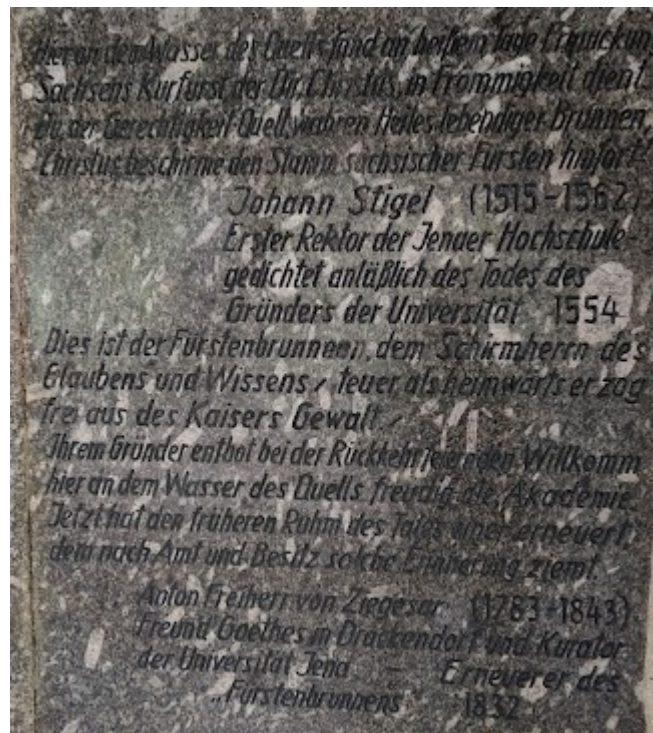 Hier an dem Wasser des Quells fand an heißem Tage Erquickun
Sachsens Kurfürst der Dir, Christus, in Frömmigkeit dient.
Du der Gerechtigkeit Quell, wahren Heiles lebendiger Brunnen,
Christus, beschirme den Stamm sächsischer Fürsten hinfort!
Johann Stigel (1515-1562)
Erster Rektor der Jenaer Hochschule-
gedichtet anläßlich des Todes des
Gründers der Universität 1554
Dies ist der Fürstenbrunnen, dem Schirmherrn des
Glaubens und Wissens / teuer, als heimwärts er zog
frei aus des Kaisers Gewalt. /
Ihrem Gründer entbot bei der Rückkehr feiernden Willkomm
hier an dem Wasser des Quells freudig die Akademie
Jetzt hat den früheren Ruhm des Tales erneuert,
dem nach Amt und Besitz solche Erinnerung ziemt.
Anton Freiherr von Ziegesar (1783-1843)
Freund Goethes in Drackendorf und Kurator
der Universität Jena — Erneuerer des
„Fürstenbrunnens" 1832